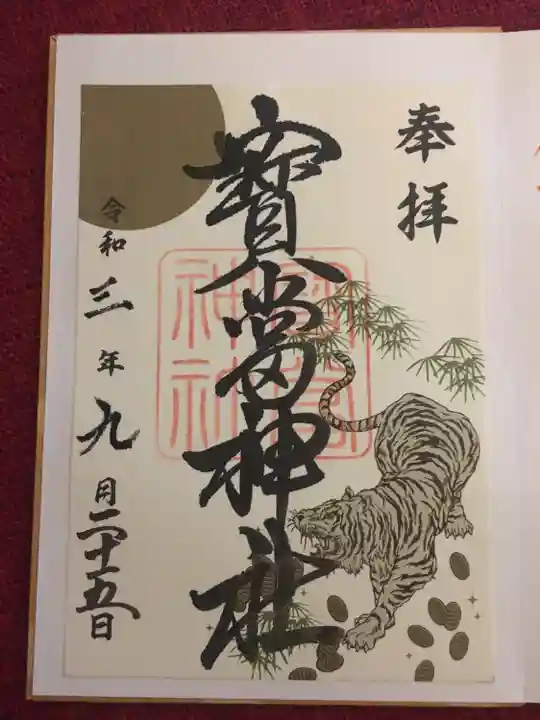 奉拝
寳當神社
寳當
神社
令和三年九月二十五日